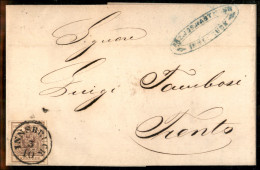 Signore
Luigi Tambosi
Trento
INNSBRUCK
3
10